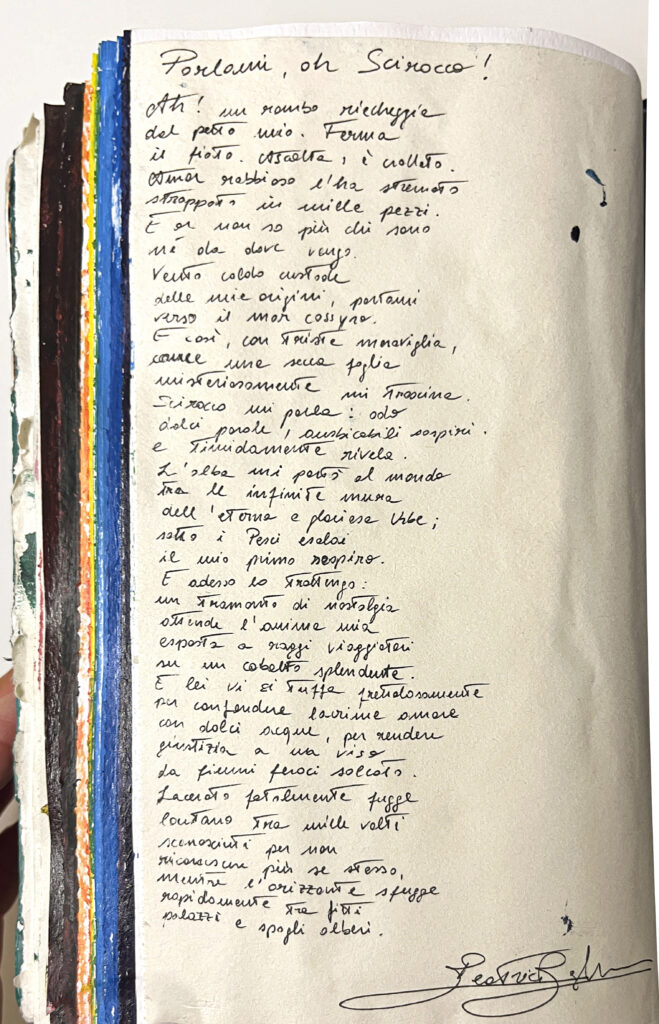 Parlami, oh Scirocco!
Ah! un rombo riecheggia
dal petto mio. Ferma
il fiato. Ascolta, è crollato.
Amor rabbioso l'ha stremato
strappato in mille pezzi.
E or non so più chi sono
né da dove vengo.
Vento caldo custode
delle mie origini, portami
verso il mar cossyro.
E così, con triste meraviglia,
come una secca foglia
misteriosamente mi trascina.
Scirocco mi parla: odo
dolci parole, ausbicabili sospiri.
e timidamente rivela.
L'alba mi portò al mondo
tra le infinite mura
dell'eterna e gloriosa Urbe;
sotto i Pesci esalai
il mio primo respiro.
E adesso lo trattengo:
un tramonto di nostalgia
attende l'anima mia
esposta a raggi viaggiatori
su un cobalto splendente.
E lei vi si tuffa
per confondere lacrime amare
con dolci acque, per rendere
giustizia a un viso
da fiumi feroci solcato.
Lacerato fatalmente fugge
lontano tra mille volti
sconosciuti per non
riconoscere più se stesso,
mentre l'orizzonte sfugge
rapidamente tra fitti
palazzi e spogli alberi.